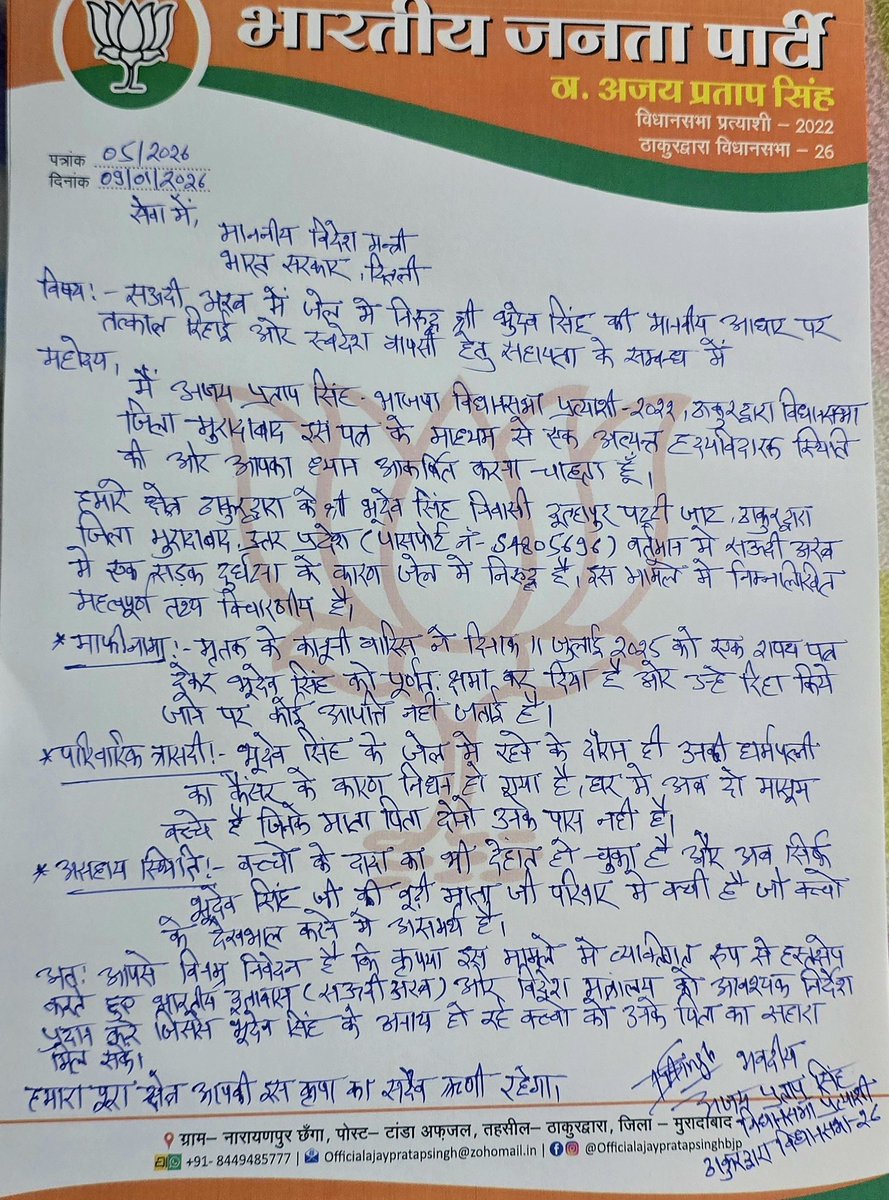 भारतीय जनता पार्टी
ठा. अजय प्रताप सिंह
विधानसभा प्रत्याशी – 2022
ठाकुरद्वारा विधानसभा - 26
पत्रांक 05/2026
दिनांक 09/01/2026
सेवा में,
माननीय विदेश मन्त्री
भारत सरकार, दिल्ली
विषय:- सऊदी अरब में जेल में निरुद्ध श्री भुदेव सिंह की मानवीय आधार पर
तत्काल रिहाई और स्वदेश वापसी हेतु सहायता के सम्बन्ध में
महोदय,
मैं अजय प्रताप सिंह - भाजपा विधानसभा प्रत्याशी-2022, ठाकुरद्वारा विधानसभा
जिला-मुरादाबाद इस पत्र के माध्यम से एक अत्यन्त हृदयविदारक स्थिति
की ओर आपका ध्यान आकर्षित करना चाहता हूँ।
हमारे क्षेत्र ठाकुरद्वारा के श्री भूदेव सिंह निवासी पट्टी जाट, ठाकुरद्वारा
जिला मुरादाबाद, उत्तर प्रदेश (पासपोर्ट नं- S4805696) वर्तमान में सऊदी अरब
मे एक सड़क दुर्घटना के कारण जेल मे निरुद्ध है। इस मामले मे निम्नलिखित
महत्वपूर्ण तथ्य विचारणीय है।
* माफीनामा:- मृतक के कानूनी वारिस ने दिनाक 11 जुलाई 2025 को एक शपथ पत्र
देकर भूदेव सिंह को पूर्णत: क्षमा कर दिया है और उन्हे रिहा किये
जाने पर कोई आपत्ति नही जताई है।
* परिवारिक त्रासदी:- भूदेव सिंह के जेल मे रहने के दौरान ही उनकी धर्मपत्नी
का कैंसर के कारण निधन हो गया है, घर मे अब दो मासूम
बच्चे है जिनके माता पिता दोनो उनके पास नही है।
* असहाय स्थिति:- बच्चो के दादा का भी देहांत हो चुका है और अब सिर्फ
भूदेव सिंह जी की बूढ़ी माता जी परिवार मे बची है जो बच्चो
के देखभाल करने मे असमर्थ है।
अत: आपसे विनम्र निवेदन है कि कृपया इस मामले मे व्यक्तिगत रुप से हस्तक्षेप
करते हुए भारतीय दूतावास (सऊदी अरब) और विदेश मंत्रालय को आवश्यक निर्देश
प्रदान करे जिससे भूदेव सिंह के अनाथ हो रहे बच्चो को उनके पिता का सहारा
मिल सके।
हमारा पूरा क्षेत्र आपकी इस कृपा का सदैव ऋणी रहेगा।
भवदीय
अजय प्रताप सिंह
विधानसभा प्रत्याशी
ठाकुरद्वारा विधानसभा-26
ग्राम– नारायणपुर छँगा, पोस्ट– टांडा अफ़जल, तहसील– ठाकुरद्वारा, जिला – मुरादाबाद
+91- 8449485777 | Officialajaypratapsingh@zohomail.in | @Officialajaypratapsinghbjp